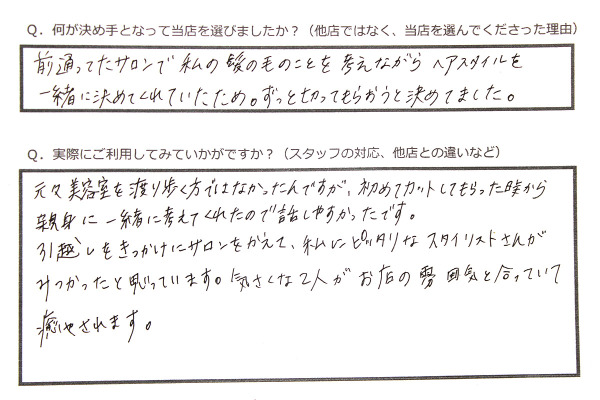 Q．何が決め手となって当店を選びましたか？（他店ではなく、当店を選んでくださった理由）
前通ってたサロンで私の髪の毛のことを考えながらヘアスタイルを
一緒に決めてくれていたため。ずっと切ってもらおうと決めてました。
Q．実際にご利用してみていかがですか？（スタッフの対応、他店との違いなど）
元々美容室を渡り歩く方ではなかったんですが、初めてカットしてもらった時から
親身に一緒に考えてくれたので話しやすかったです。
引越しをきっかけにサロンをかえて、私にピッタリなスタイリストさんが
みつかったと思っています。気さくな2人がお店の雰囲気と合っていて
癒やされます。